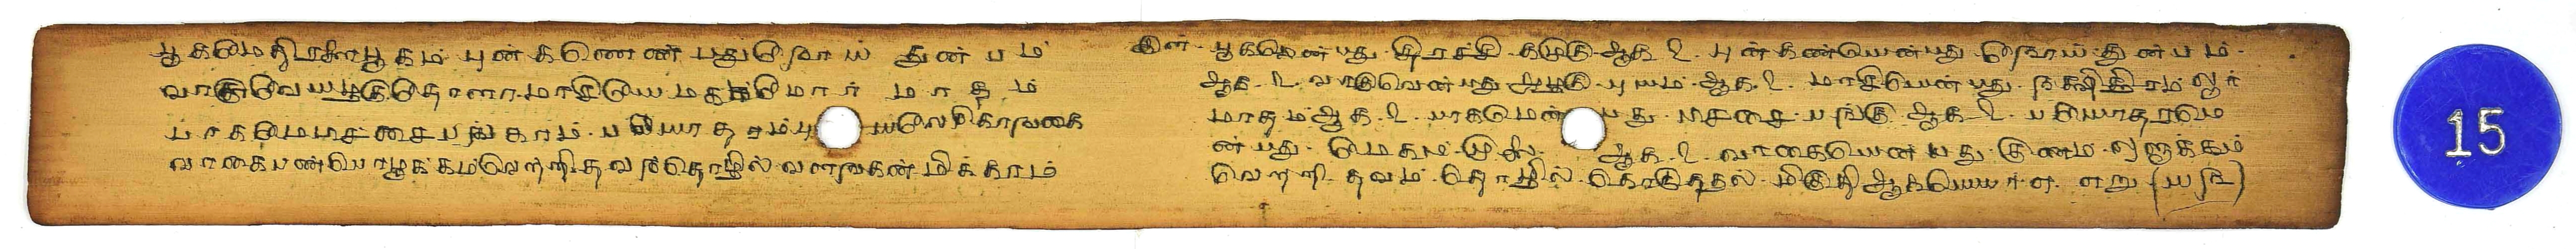 பூகமெதிரளபூகம் புன்கணெண பதுநொய் துன் ப ம்
வாகுவெயழகுதொளாமாசியெ மகமொர் மா த ம்
பாகமெபிச்சைபங்காம் பயொதரம்பு யலெகொங்கை
வாகைபண்பொழுக்கம்வெற்றி தவந்தொழில் வளங்கள் மிக்காம்
இள் பூகமென்பது திரட்சி கமுகு ஆக ௨ புன்கண்யென்பது நொய் துன்பம்
ஆக ௨ வாகுவென்பது அழகு புயம் ஆக ௨ மாசியென்பது நக்ஷத்திரம் ஓர்
மாதம் ஆக ௨ பாகமென் பது பிச்சை பங்கு ஆக ௨ பயொதரமெ
ன்பது மெகம் முலை ஆக ௨ வாகையென்பது குணம் ஒழுக்கம்
வெற்றி தவம் தொழில் கொடுத்தல் மிகுதி ஆகபெயர் எ எறு (௰௩)
15